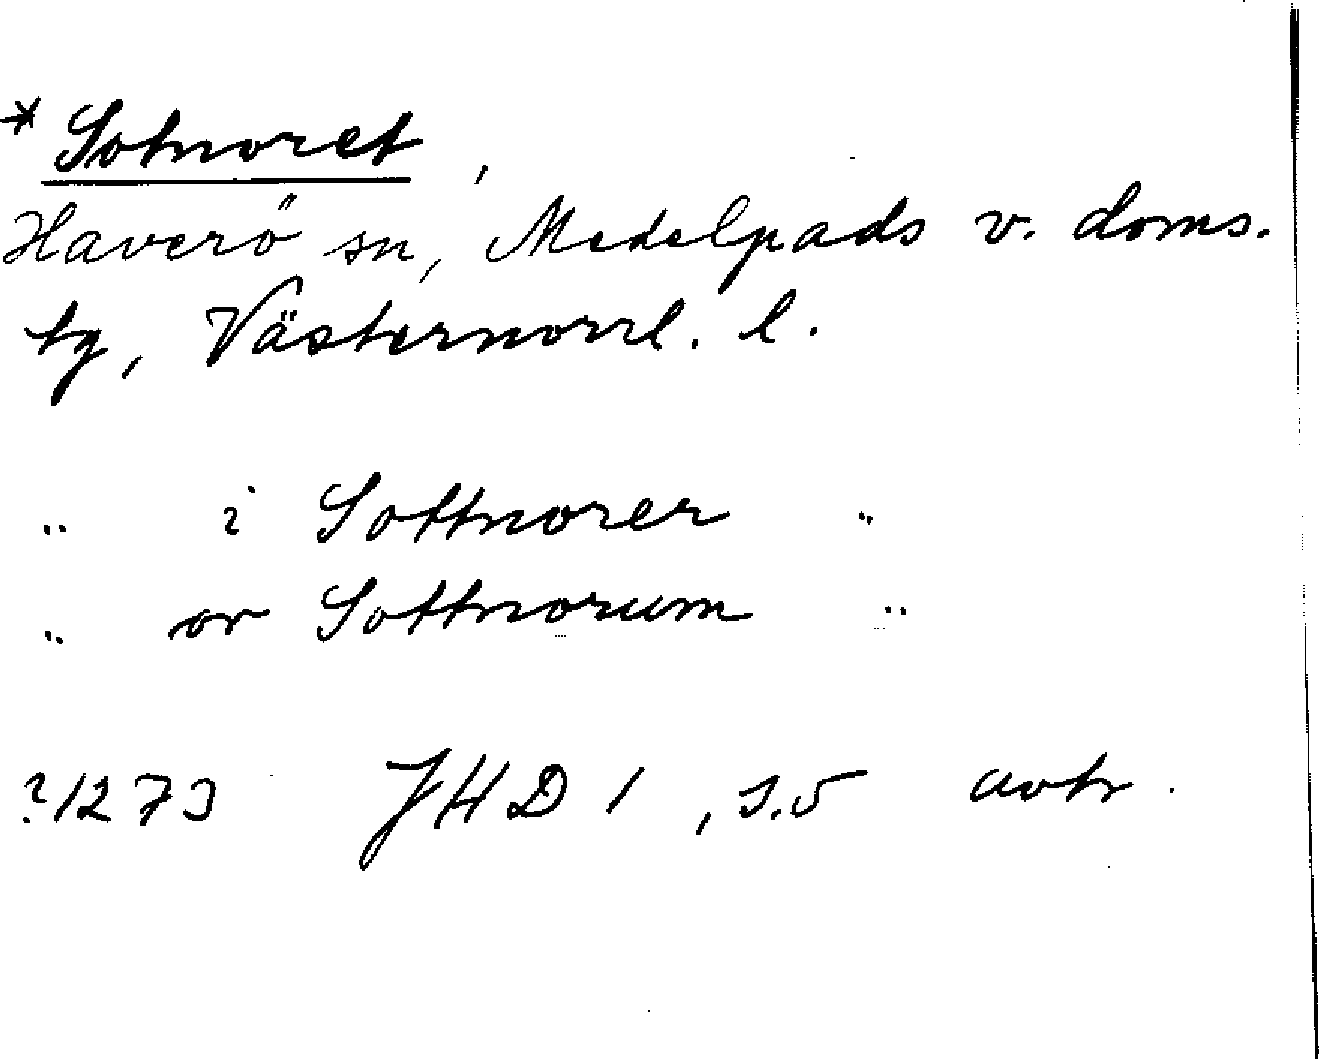 * Sotnoret,
Haverö sn, Medelpads v. doms.
tg, Västernorrl. l.
" i Sottnorer "
" or Sottnorum "
?1273 JHD 1, s.5 avtr.